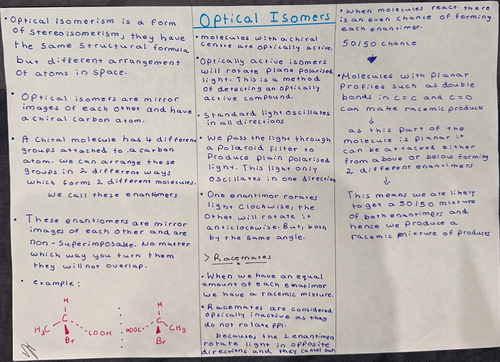 • Optical isomerism is a form
of stereoisomerism, they have
the same structural formula
but different arrangement
of atoms in space.
• Optical isomers are mirror
images of each other and have
a chiral carbon atom.
• A chiral molecule has 4 different
groups attached to a carbon
atom. We can arrange these
groups in 2 different ways
which forms 2 different molecules.
we call these enantiomers
• These enantiomers are mirror
images of each other and are
non-superimposable. No matter
which way you turn them
they will not overlap.
• example:
H H
C C
H3C COOH HOOC CH3
Br Br
Optical Isomers
• molecules with a chiral
centre are optically active.
• Optically active isomers
will rotate plane polarised
light. This is a method
of detecting an optically
active compound.
• Standard light oscillates
in all directions
• We pass the light through
a Polaroid filter to
Produce plain polarised
light. This light only
oscillates in one direction
• One enantiomer rotates
light clockwise, the
other will rotate it
anticlockwise. But, both
by the same angle.
> Racemates
• When we have an equal
amount of each
we have a racemic mixture.
• Racemates are considered
optically inactive as they
do not rotate PPl.
because, the 2 enantiomers
rotate light in opposite
directions and they cancel out
• when molecules react there
is an even chance of forming
each enantiomer.
50/50 chance
• Molecules with Planar
Profiles such as double
bonds in C=C and C=O
can make racemic products
as this part of the
molecule is planar it
can be attacked either
from above or below forming
2 different enantiomers
This means we are likely
to get a 50/50 mixture
of both enantiomers and
hence we produce a
racemic mixture of products